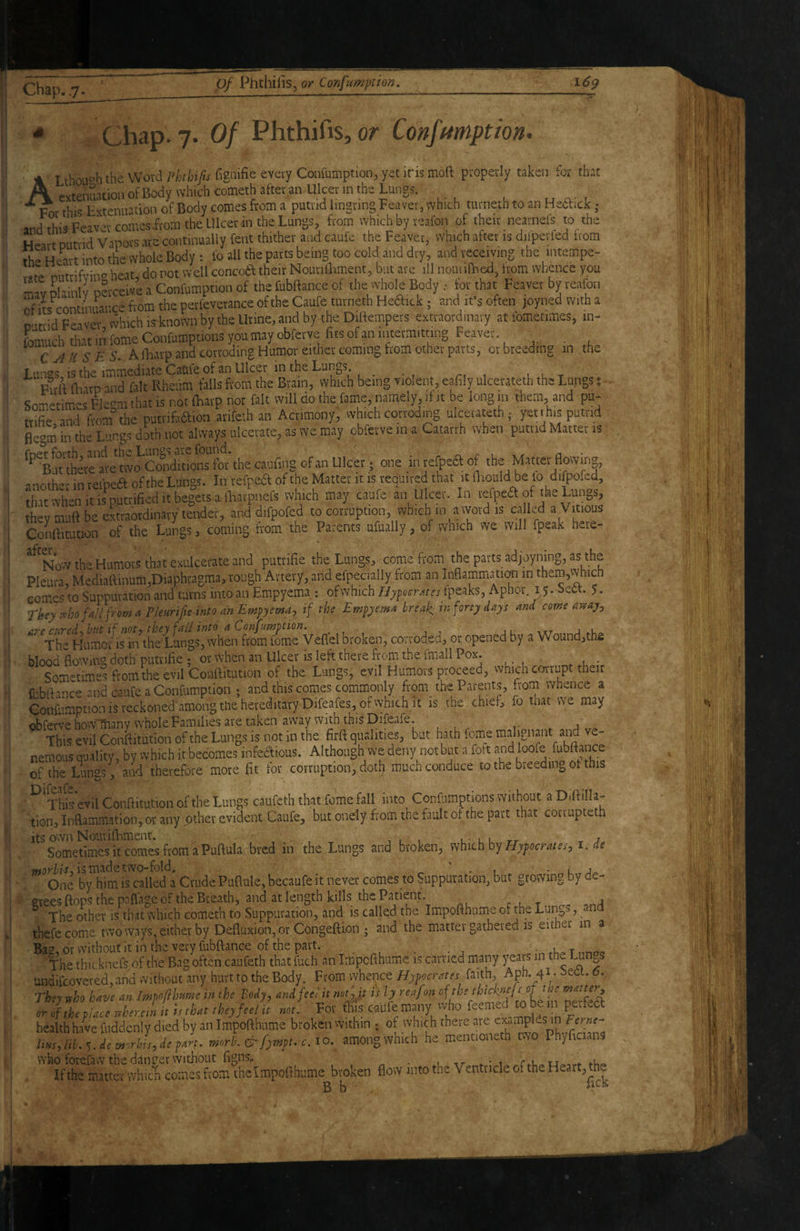 Chap. 7. Of Phthisis, or Consumption. 169
Chap. 7. Of Phthisis, or Consumption.
ALthough the Word Phthisis signifie every Consumption, yet it is most properly taken for that
extenuation of Body which cometh after an Ulcer in the Lungs.
For this Extenuation of Body comes from a putrid lingring Feaver, which turneth to an Hectick;
and this Feaver comes from the Ulcer in the Lungs, from which by reason of their nearness to the
Heart putrid Vapors are continually sent thither and cause the Feaver, which after is dispersed from
the Heart into the whole Body: so all the parts being too cold and dry, and receiving the intempe-
rate putrifying heat, do not well concoct their Nourishment, but are ill nourished, from whence you
may plainly perceive a Consumption of the substance of the whole Body: for that Feaver by reason
of its continuance from the perseverance of the Cause turneth Hectick; and it's often joyned with a
putrid Feaver, which is known by the Urine, and by the Distempers extraordinary at sometimes, in-
somuch that in some Consumptions you may observe fits of an intermitting Feaver.
CAUSES. A sharp and corroding Humor either coming from other parts, or breeding in the
Lungs, is the immediate Cause of an Ulcer in the Lungs.
First sharp and salt Rheum falls from the Brain, which being violent, easily ulcerateth the Lungs:
Sometimes Flegm that is not sharp nor salt will do the same, namely, if it be long in them, and pu-
trifie, and from the putrifaction ariseth an Acrimony, which corroding ulcerateth; yet this putrid
flegm in the Lungs doth not always ulcerate, as we may observe in a Catarrh when putrid Matter is
spet forth, and the Lungs are found.
But there are two Conditions for the causing of an Ulcer; one in respect of the Matter flowing,
another in respect of the Lungs. In respect of the Matter it is required that it should be so disposed,
that when it is putrified it begets a sharpness which may cause an Ulcer. In respect of the Lungs,
they must be extraordinary tender, and disposed to corruption, which in a word is called a Vitious
Constitution of the Lungs, coming from the Parents usually, of which we will speak here-
after.
Now the Humors that exulcerate and putrifie the Lungs, come from the parts adjoyning, as the
Pleura, Mediastinum, Diaphragma, rough Artery, and especially from an Inflammation in them, which
comes to Suppuration and turns into an Empyema: of which Hypocrates speaks, Aphor. 15. Sect. 5.
They who fall from a Pleurisie into an Empyema, if the Empyema break in forty days and come away,
are cured, but if not, they fall into a Consumption.
The Humor is in the Lungs, when from some Vessel broken, corroded, or opened by a Wound, the
blood flowing doth putrifie; or when an Ulcer is left there from the small Pox.
Sometimes from the evil Constitution of the Lungs, evil Humors proceed, which corrupt their
substance and cause a Consumption; and this comes commonly from the Parents, from whence a
Consumption is reckoned among the hereditary Diseases, of which it is the chief, so that we may
observe how many whole Families are taken away with this Disease.
This evil Constitution of the Lungs is not in the first qualities, but hath some malignant and ve-
nemous quality, by which it becomes infectious. Although we deny not but a soft and loose substance
of the Lungs, and therefore more fit for corruption, doth much conduce to the breeding of this
Disease.
This evil Constitution of the Lungs causeth that some fall into Consumptions without a Distilla-
tion, Inflammation, or any other evident Cause, but onely from the fault of the part that corrupteth
its own Nourishment.
Sometimes it comes from a Pustula bred in the Lungs and broken, which by Hypocrates, 1. de
morbis, is made two-fold.
One by him is called a Crude Pustule, because it never comes to Suppuration, but growing by de-
grees stops the passage of the Breath, and at length kills the Patient.
The other is that which cometh to Suppuration, and is called the Imposthume of the Lungs, and
these come two ways, either by Defluxion, or Congestion; and the matter gathered is either in a
Bag, or without it in the very substance of the part.
The thickness of the Bag often causeth that such an Imposthume is carried many years in the Lungs
undiscovered, and without any hurt to the Body. From whence Hypocrates saith, Aph. 41. Sect. 6.
They who have an Imposthume in the Body, and feel it not, it is by reason of the thickness of the matter,
or of the place wherein it is that they feel it not. For this cause many who seemed to be in perfect
health have suddenly died by an Imposthume broken within; of which there are examples in Ferne-
lius, lib. 5. de morbis, de part. morb. & sympt. c. 10. among which he mentioneth two Physicians
who foresaw the danger without signs.
If the matter which comes from the Imposthume broken flow into the Ventricle of the Heart, the
B b sick